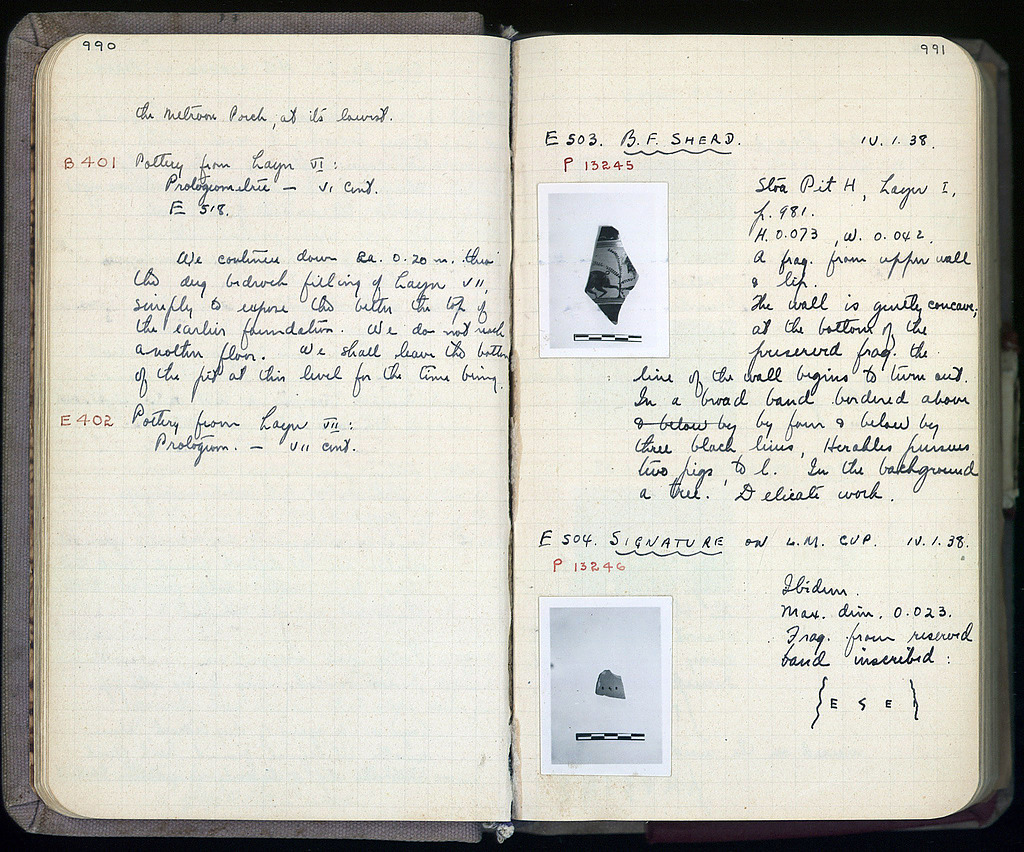 990
the Metroon Porch, at its lowest.
B 401 Pottery from Layer VI:
Protogeometric — VI cent.
E 518.
We continue down ca. 0.20 m. thru
the dug bedrock filling of Layer VII,
simply to expose the better the top of
the earlier foundation. We do not reach
another floor. We shall leave the bottom
of the pit at this level for the time being.
E 402 Pottery from Layer VII:
Protogeom. — VII cent.
991
E 503. B.F. SHERD. IV.1.38.
P 13245
Stoa Pit H, Layer I,
p. 981.
H. 0.073, W. 0.042.
A frag. from upper wall
& lip.
The wall is gently concave;
at the bottom of the
preserved frag. the
line of the wall begins to turn out.
In a broad band bordered above
& below by by four & below by
three black lines, Herakles pursues
two pigs to l. In the background
a tree. Delicate work.
E 504. SIGNATURE ON L.M. CUP. IV.1.38.
P 13246
Ibidem.
Max. dim. 0.023.
Frag. from reserved
band inscribed:
{ E S E }